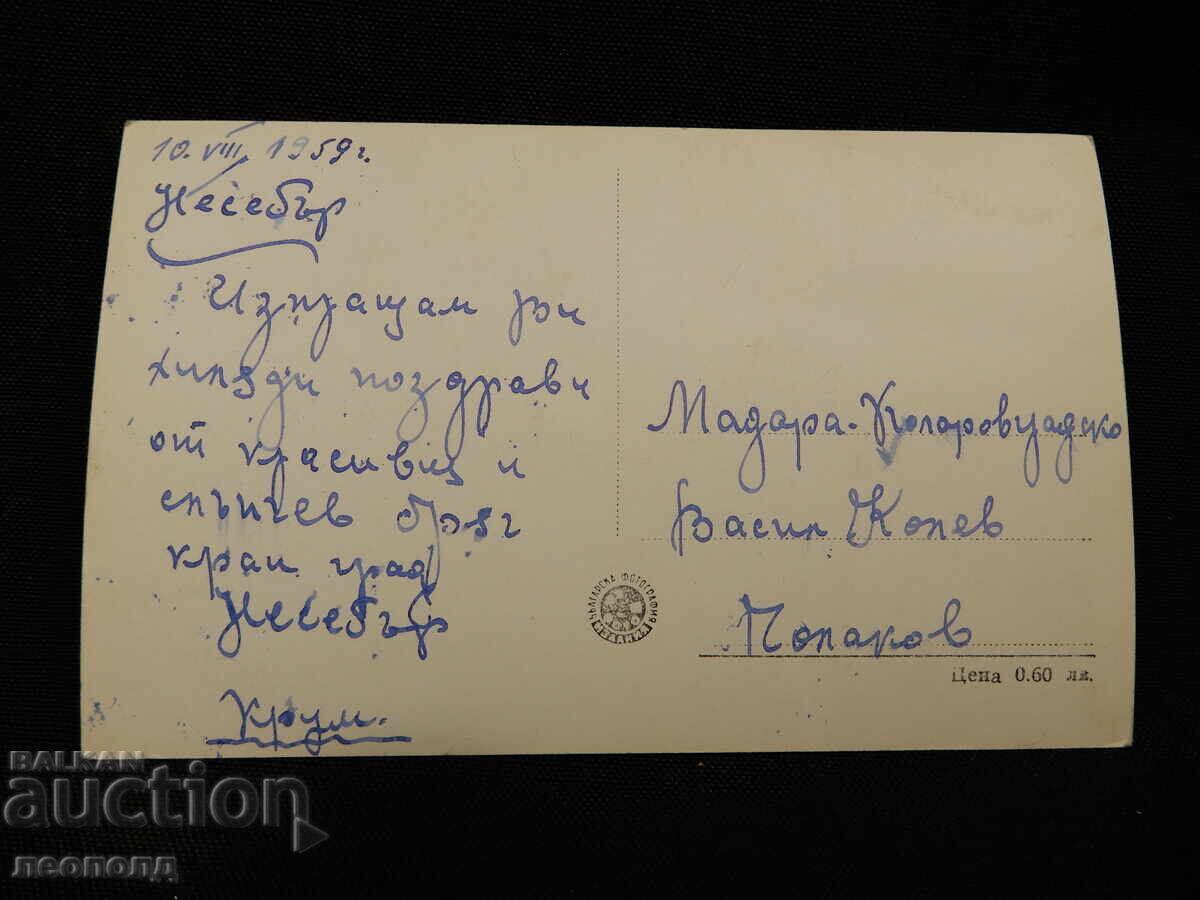 10. VIII. 1959 г.
Несебър
Изпращам Ви
хиляди поздрави
от красивия и
слънчев бряг
край град
Несебър
Крум.
Мадара - Коларовградско
Васил Колев
Полаков
БЪЛГАРСКА ФОТОГРАФИЯ
Цена 0.60 лв.
BALKAN
auction
леополд